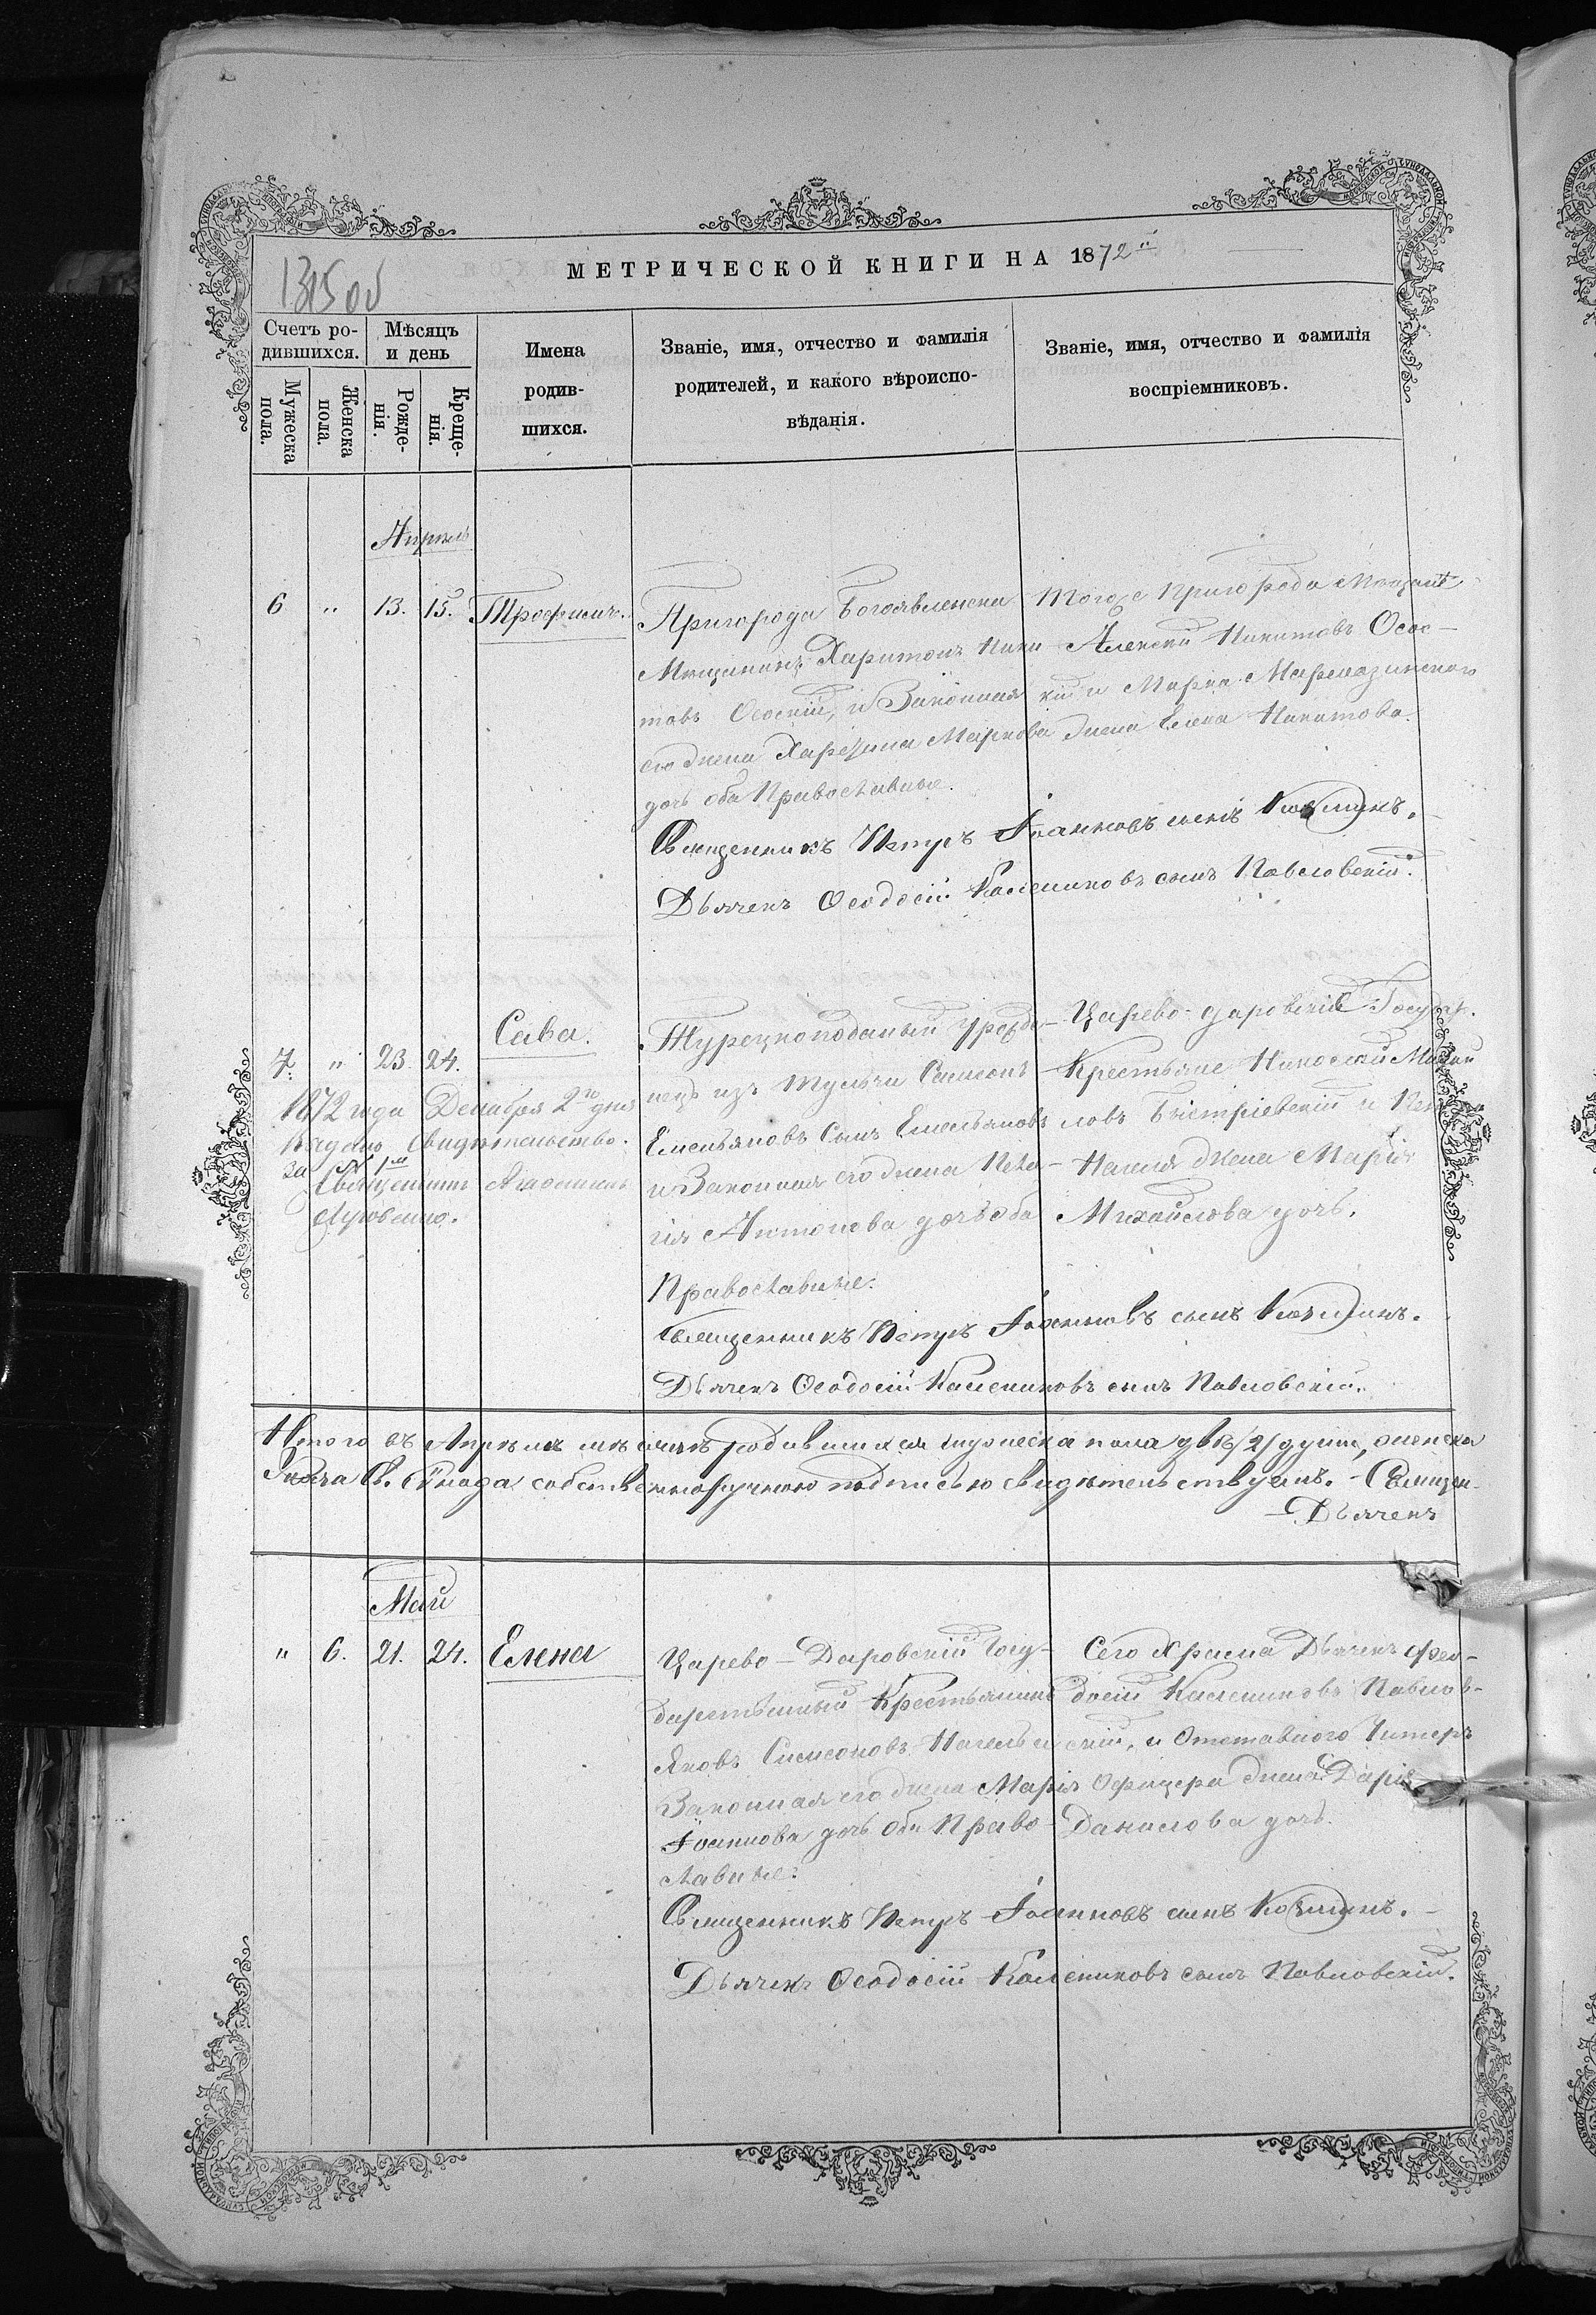 МЕТРИЧЕСКОЙ КНИГИ НА 1872й
Счетъ ро-
дившихся.
Мужеска пола.
Женска пола.
Мѣсяцъ
и день
Рожде-
нія.
Креще-
нія.
Имена
родив-
шихся.
Званіе, имя, отчество и фамилія
родителей, и какого вѣроиспо-
вѣданія.
Званіе, имя, отчество и фамилія
воспріемниковъ.
Апрель
6 " 13. 15. Трофимъ.
Пригорода Богоявленска
Мещанинъ Харитонъ Ники-
товъ Осоский, и Законная
его жена Маркова
дочь оба Православные.
Того же пригорода Мещане
Алексий Никитовъ Осос-
кий и Марка
жена Елена Никитова.
Священникъ Петръ Іоанновъ сынъ
Дьячекъ Ѳеодосій Калениковъ сынъ Павловскій.
7. " 23. 24. Сава.
Турецкоподаный
изъ Тульчи Симеонъ
Емельяновъ сынъ Емельяновъ
и Законная его жена Пела-
гія Антонова дочь оба
Православные.
Царево-даровскіе Госуд.
Крестьяне Николай Михай
ловъ и
жена Марія
Михайлова дочь.
1872 года Декабря 2го дня
Выдано свидетельство.
за № 1м
Священникъ
Священникъ Петръ Іоанновъ сынъ
Дьячекъ Ѳеодосій Калениковъ сынъ Павловскій.
Итого въ Апрѣлѣ мѣсяцѣ родившихся мужеска пола двѣ /2/ души, женска
Указа Св. Сѵнода собственноручною подписью свидѣтельствуемъ. - Священ-
- Дьячекъ
Май
" 6. 21. 24. Елена
Царево-Даровскій Госу-
дарственный Крестьянинъ
Яковъ Симеоновъ и
Законная его жена Марія
Іоаннова дочь оба Право-
славные.
Сего Храма Дьячекъ Фео-
досій Калениковъ Павлов-
скій, и Отставного Унтеръ
Офицера жена Дарія
Данилова дочь.
Священникъ Петръ Іоанновъ сынъ
Дьячекъ Ѳеодосій Калениковъ сынъ Павловскій.